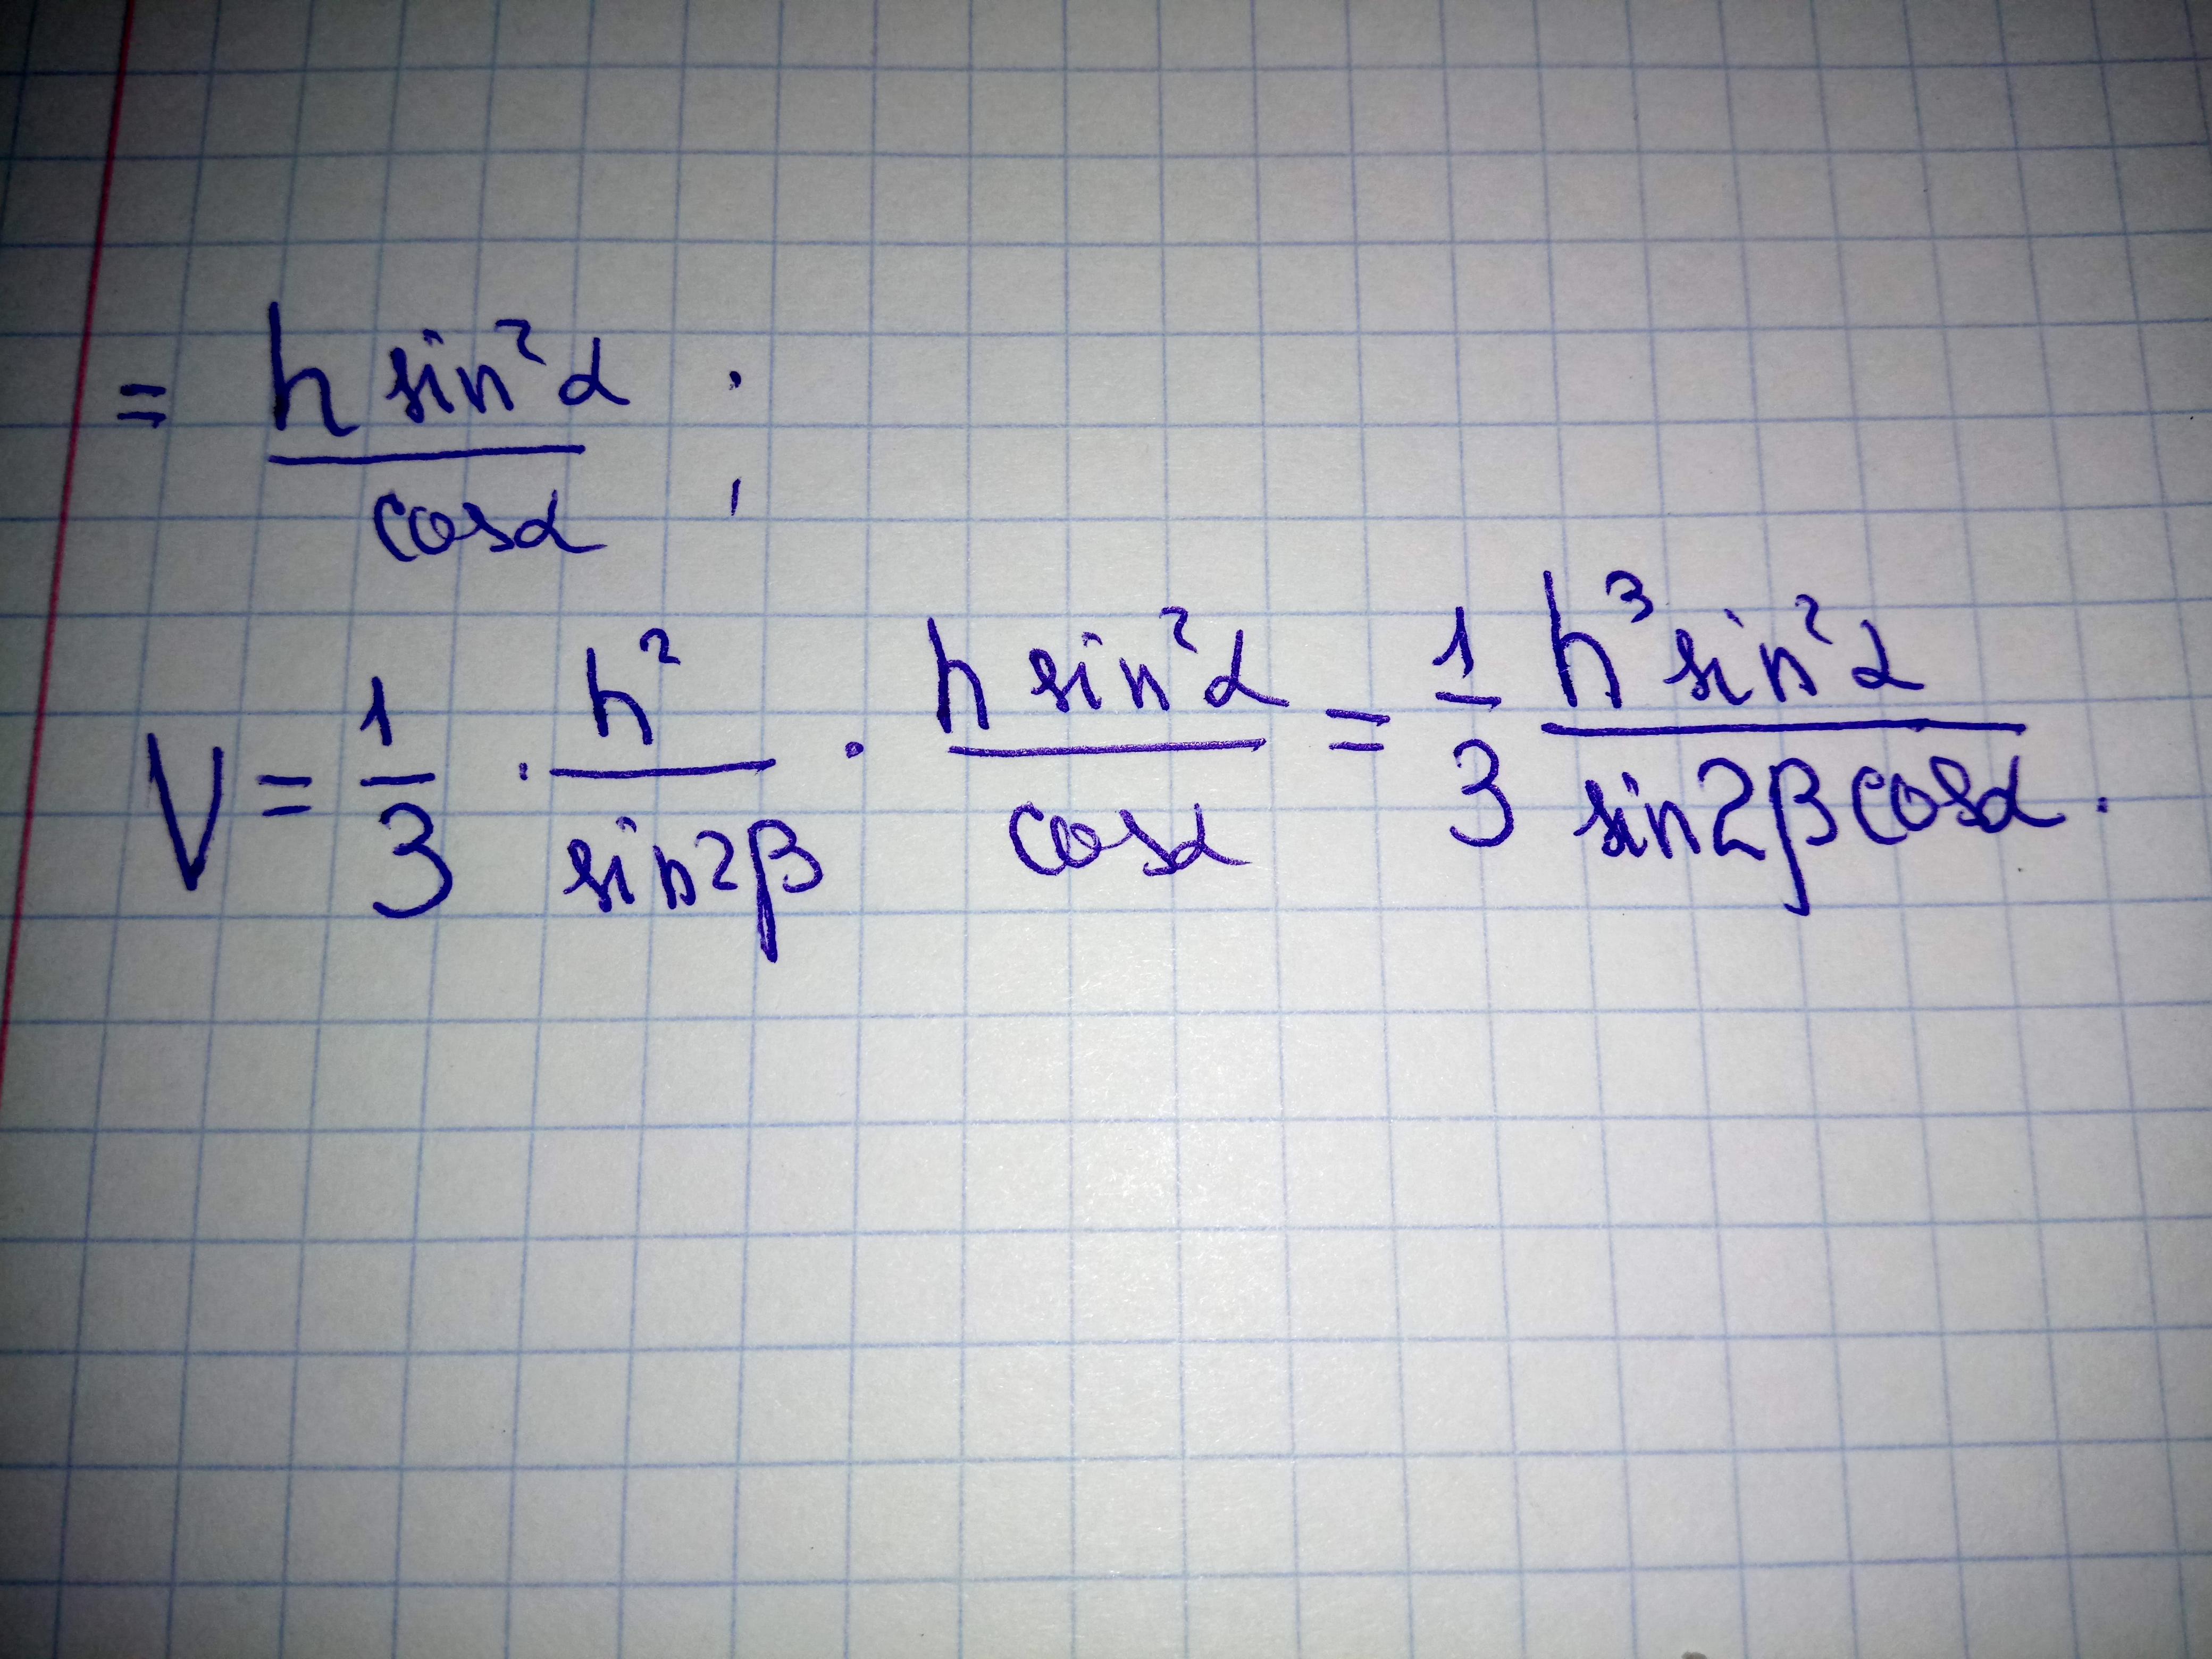 = h sin²α / cosα ;
V = 1/3 · h² / sin2β · h sin²α / cosα = 1/3 h³ sin²α / sin2β cosα .